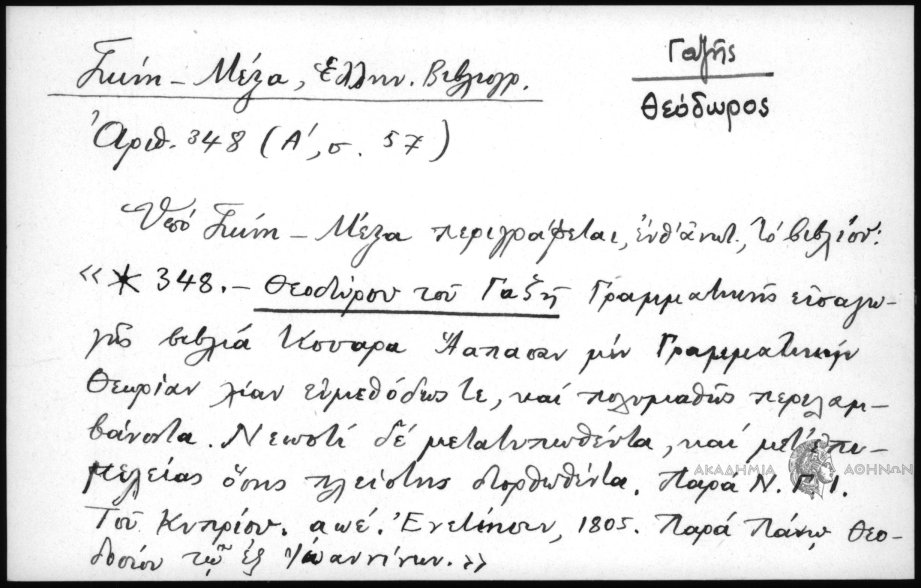 Γαζῆς
Θεόδωρος
Γκίνη – Μέξα, Ἑλλην. Βιβλιογρ.
Ἀριθ. 348 (Α΄, σ. 57)
Ὑπό Γκίνη – Μέξα περιγράφεται, ἐνθ' ἀνωτ., τό βιβλίον:
«* 348. – Θεοδώρου τοῦ Γαζῆ Γραμματικῆς εἰσαγω-
γῆς βιβλία τέσσαρα Ἅπασαν μήν Γραμματικήν
Θεωρίαν λίαν εὐμεθόδως τε, καί πολυμαθῶς περιλαμ-
βάνοντα. Νεωστί δέ μετατυπωθέντα, και μετ' ἐπι-
μελείας ὅσης πλείστης διορθωθέντα. Παρά Ν. Γ. Ι.
Τοῦ Κυπρίου. αωέ. Ἐνετίησιν, 1805. Παρά Πάνῳ Θεο-
δοσίου τῷ ἐξ Ἰωαννίνων.»
ΑΚΑΔΗΜΙΑ ΑΘΗΝΩΝ